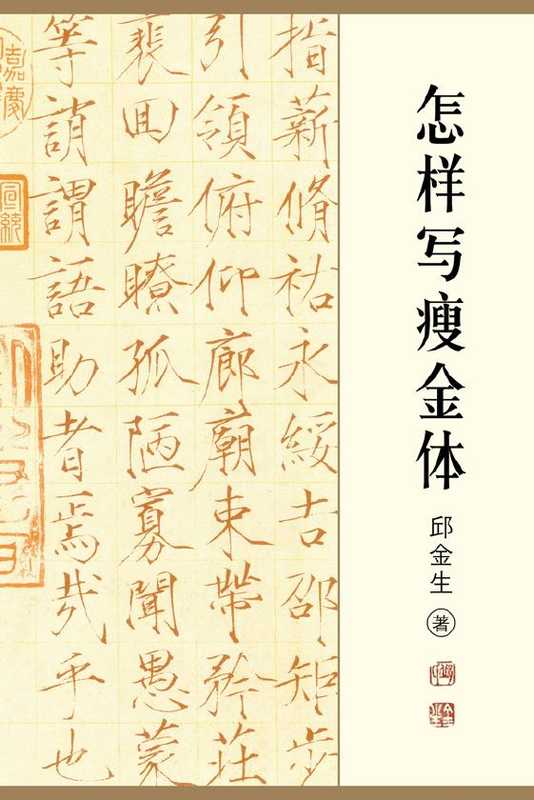 怎样写瘦金体
邱金生 著
指薪脩祐永綏吉邵矩步
引領俯仰廊廟束帶矜莊
裵回瞻瞭孤陋寡聞愚蒙
等誚謂語助者焉哉乎也
嘉慶
宣統